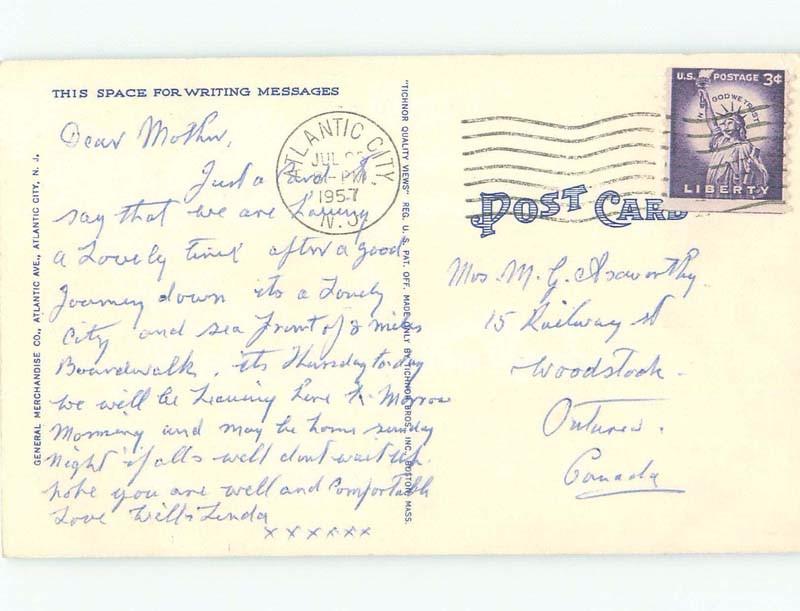 THIS SPACE FOR WRITING MESSAGES
Dear Mother,
Just a Card to
say that we are having
a Lovely time after a good
Journey down its a Lovely
City and sea front of 8 miles
Boardwalk, its Thursday to-day
we will be Leaving here to-Morrow
Morning and may be home sunday
Night if alls well dont wait up
hope you are well and Comfortable
Love Will & Linda
x x x x x x
GENERAL MERCHANDISE CO., ATLANTIC AVE., ATLANTIC CITY, N. J.
"TICHNOR QUALITY VIEWS" REG. U. S. PAT. OFF. MADE ONLY BY TICHNOR BROS., INC., BOSTON, MASS.
ATLANTIC CITY
JUL
PM
1957
N.J.
U.S. POSTAGE 3¢
IN GOD WE TRUST
LIBERTY
POST CARD
Mrs. M. G.
15 Railway st
Woodstock
Ontario.
Canada